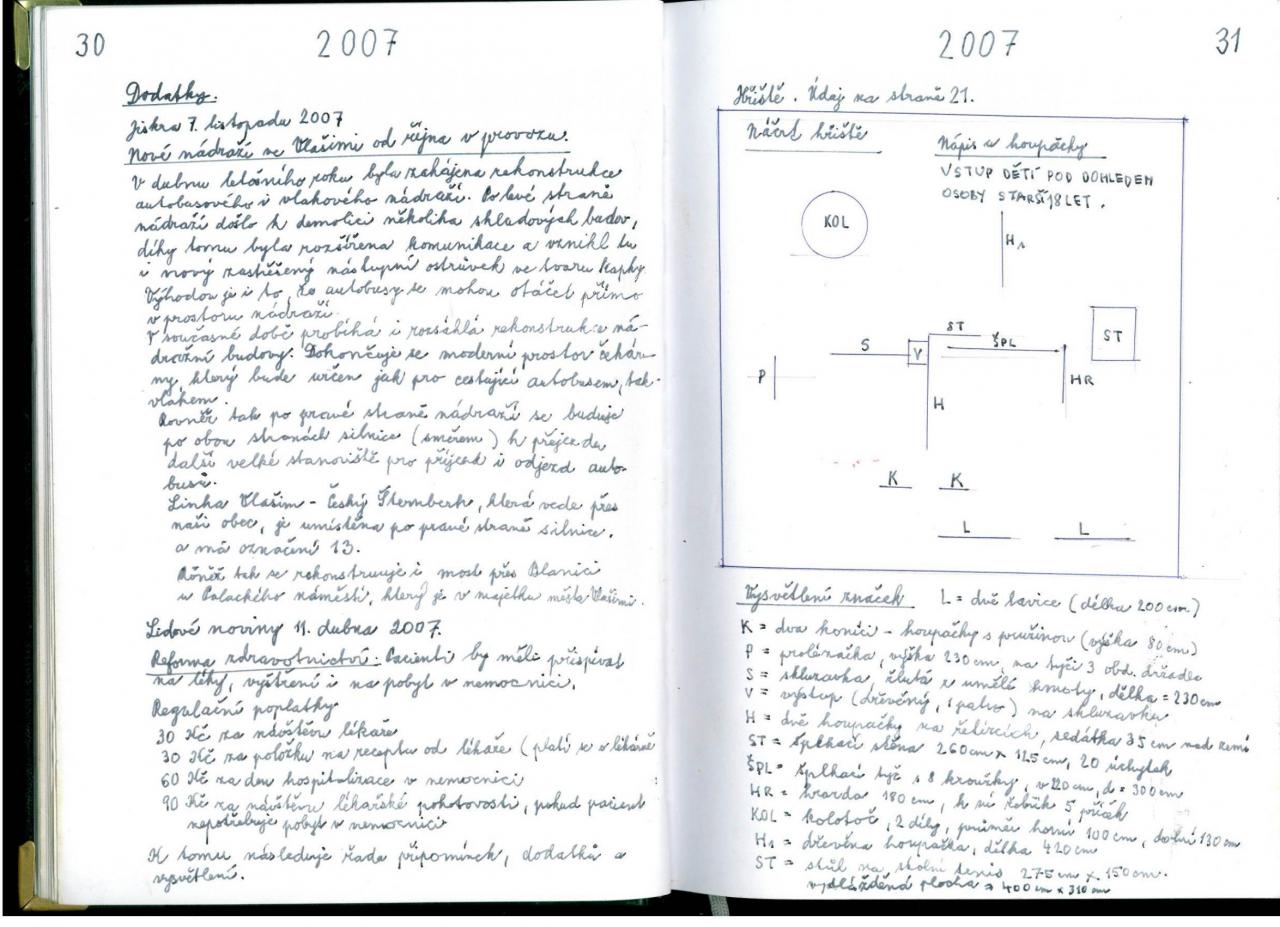 30
2007
Dodatky.
Jiskra 7. listopadu 2007
Nové nádraží ve Vlašimi od října v provozu.
V dubnu letošního roku byla zahájena rekonstrukce
autobusového i vlakového nádraží. Po levé straně
nádraží došlo k demolici několika skladových budov,
díky tomu byla rozšířena komunikace a vznikl tu
i nový zastřešený nástupní ostrůvek ve tvaru kapky.
Výhodou je i to, že autobusy se mohou otáčet přímo
v prostoru nádraží.
V současné době probíhá i rozsáhlá rekonstrukce ná-
dražní budovy. Dokončuje se moderní prostor čekár-
ny, který bude určen jak pro cestující autobusem, tak
vlakem.
Rovněž tak po pravé straně nádraží se buduje
po obou stranách silnice (směrem) k přejezdu
další velké stanoviště pro příjezd i odjezd auto-
busů.
Linka Vlašim - Český Šternberk, která vede přes
naši obec, je umístěna po pravé straně silnice.
a má označení 13.
Róněž tak se rekonstruuje i most přes Blanici
u Palackého náměstí, který je v majetku města Vlašimi.
Lidové noviny 11. dubna 2007.
Reforma zdravotnictví. Pacienti by měli přispívat
na léky, vyšetření i na pobyt v nemocnici.
Regulační poplatky
30 Kč za návštěvu lékaře
30 Kč za položku na receptu od lékaře (platí se v lékárně
60 Kč za den hospitalizace v nemocnici
90 Kč za návštěvu lékařské pohotovosti, pokud pacient
nepotřebuje pobyt v nemocnici
K tomu následuje řada připomínek, dodatků a
vysvětlení.
2007
31
Hřiště. Údaj na straně 21.
Náčrt hřiště
Nápis u houpačky
VSTUP DĚTÍ POD DOHLEDEM
OSOBY STARŠÍ 18 LET.
KOL
H1
ST
S
V
ŠPL
ST
P
H
HR
K
K
L
L
Vysvětlení značek L = dvě lavice (délka 200 cm.)
K = dva koníci - houpačky s pružinou (výška 80 cm)
P = prolézačka, výška 230 cm, na tyči 3 obd. držadla
S = skluzavka, žlutá z umělé hmoty, délka = 230 cm
V = výstup (dřevěný, 1 patro) na skluzavku
H = dvě houpačky na řetízcích, sedátka 35 cm nad zemí
ST = šplhací stěna 260 cm x 125 cm, 20 úchytek
ŠPL = šplhací tyč s 8 kroužky, v 220 cm, d = 300 cm
HR = hrazda 180 cm, k ní žebřík 5 příček
KOL = kolotoč, 2 díly, průměr horní 100 cm, dolní 130 cm
H1 = dřevěná houpačka, délka 420 cm
ST = stůl na stolní tenis 275 cm x 150 cm.
vydlážděná plocha = 400 cm x 310 cm